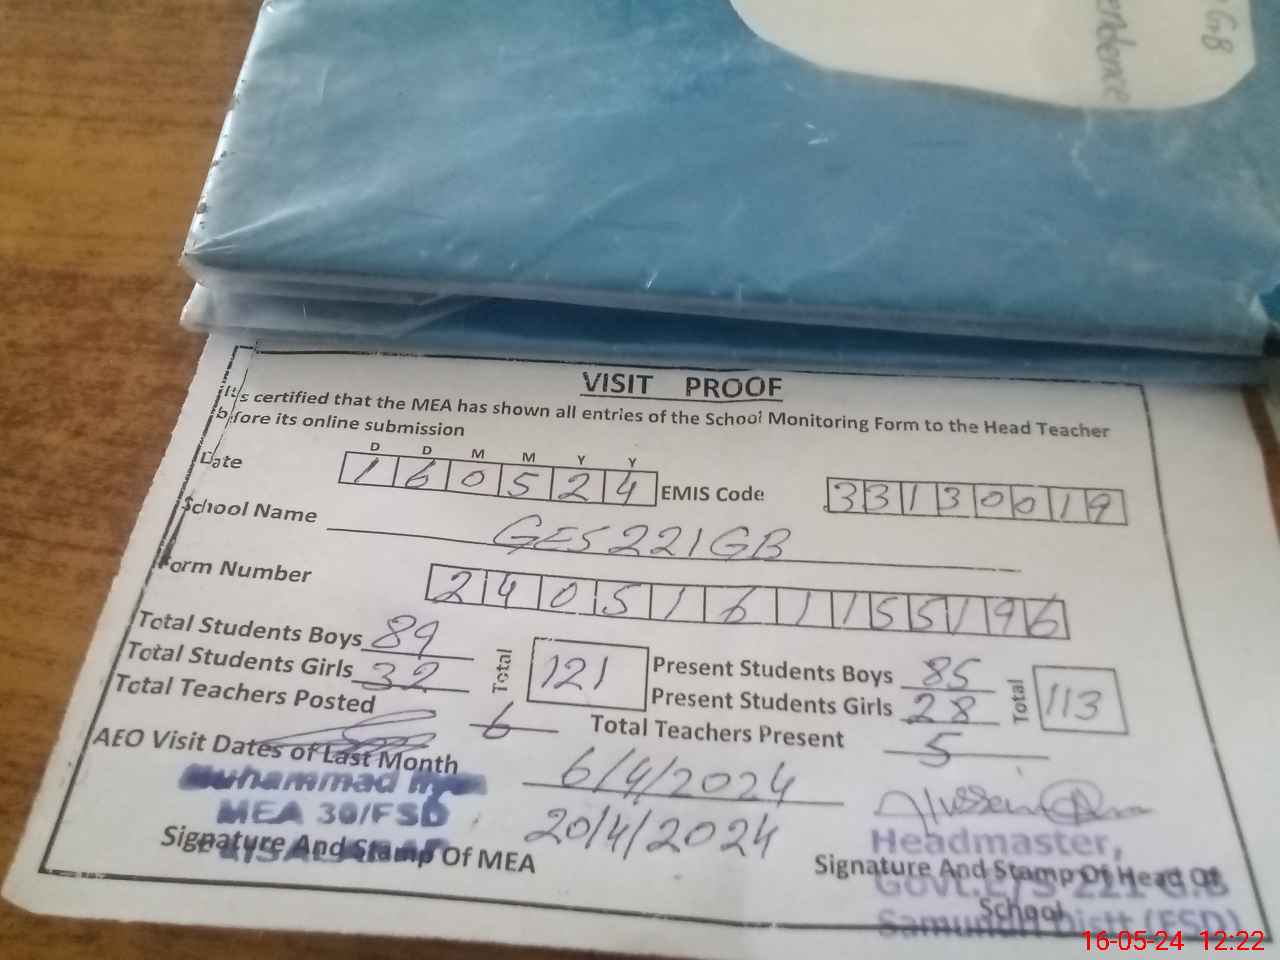 GB
endence
VISIT PROOF
It s certified that the MEA has shown all entries of the School Monitoring Form to the Head Teacher
b fore its online submission
D D M M Y Y
Date 160524 EMIS Code 33130019
School Name GES 221 GB
Form Number 2405161155196
Total Students Boys 89
Total Students Girls 32
Total 121
Present Students Boys 85
Present Students Girls 28
Total 113
Total Teachers Posted 6
Total Teachers Present 5
AEO Visit Dates of Last Month 6/4/2024
20/4/2024
Muhammad
MEA 30/FSD
Signature And Stamp Of MEA
Headmaster,
Signature And Stamp Of Head Of
School
Govt. E/S 221 G.B
Samundri Distt (FSD)
16-05-24 12:22